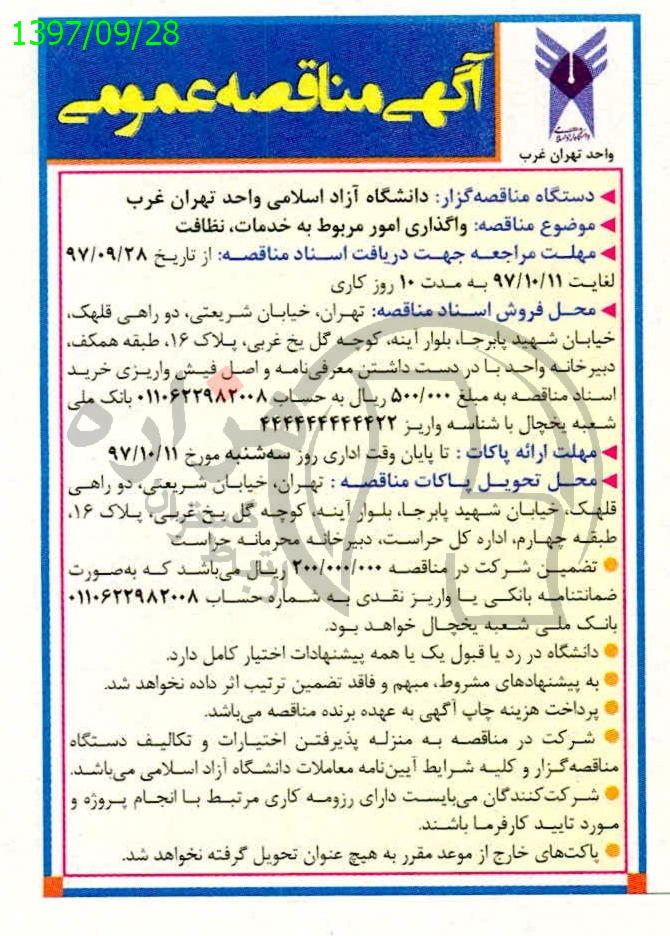 1397/09/28
آگهی مناقصه عمومی
واحد تهران غرب
دستگاه مناقصه‌گزار: دانشگاه آزاد اسلامی واحد تهران غرب
موضوع مناقصه: واگذاری امور مربوط به خدمات، نظافت
مهلت مراجعه جهت دریافت اسناد مناقصه: از تاریخ ۹۷/۰۹/۲۸
لغایت ۹۷/۱۰/۱۱ به مدت ۱۰ روز کاری
محل فروش اسناد مناقصه: تهران، خیابان شریعتی، دو راهی قلهک،
خیابان شهید پابرجا، بلوار آینه، کوچه گل یخ غربی، پلاک ۱۶، طبقه همکف،
دبیرخانه واحد با در دست داشتن معرفی‌نامه و اصل فیش واریزی خرید
اسناد مناقصه به مبلغ ۵۰۰/۰۰۰ ریال به حساب ۰۱۱۰۶۲۲۹۸۲۰۰۸ بانک ملی
شعبه یخچال با شناسه واریز ۴۴۴۴۴۴۴۴۴۴۲۲
مهلت ارائه پاکات : تا پایان وقت اداری روز سه‌شنبه مورخ ۹۷/۱۰/۱۱
محل تحویل پاکات مناقصه : تهران، خیابان شریعتی، دو راهی
قلهک، خیابان شهید پابرجا، بلوار آینه، کوچه گل یخ غربی، پلاک ۱۶،
طبقه چهارم، اداره کل حراست، دبیرخانه محرمانه حراست
تضمین شرکت در مناقصه ۲۰۰/۰۰۰/۰۰۰ ریال می‌باشد که به‌صورت
ضمانتنامه بانکی یا واریز نقدی به شماره حساب ۰۱۱۰۶۲۲۹۸۲۰۰۸
بانک ملی شعبه یخچال خواهد بود.
دانشگاه در رد یا قبول یک یا همه پیشنهادات اختیار کامل دارد.
به پیشنهادهای مشروط، مبهم و فاقد تضمین ترتیب اثر داده نخواهد شد.
پرداخت هزینه چاپ آگهی به عهده برنده مناقصه می‌باشد.
شرکت در مناقصه به منزله پذیرفتن اختیارات و تکالیف دستگاه
مناقصه‌گزار و کلیه شرایط آیین‌نامه معاملات دانشگاه آزاد اسلامی می‌باشد.
شرکت‌کنندگان می‌بایست دارای رزومه کاری مرتبط با انجام پروژه و
مورد تایید کارفرما باشند.
پاکت‌های خارج از موعد مقرر به هیچ عنوان تحویل گرفته نخواهد شد.